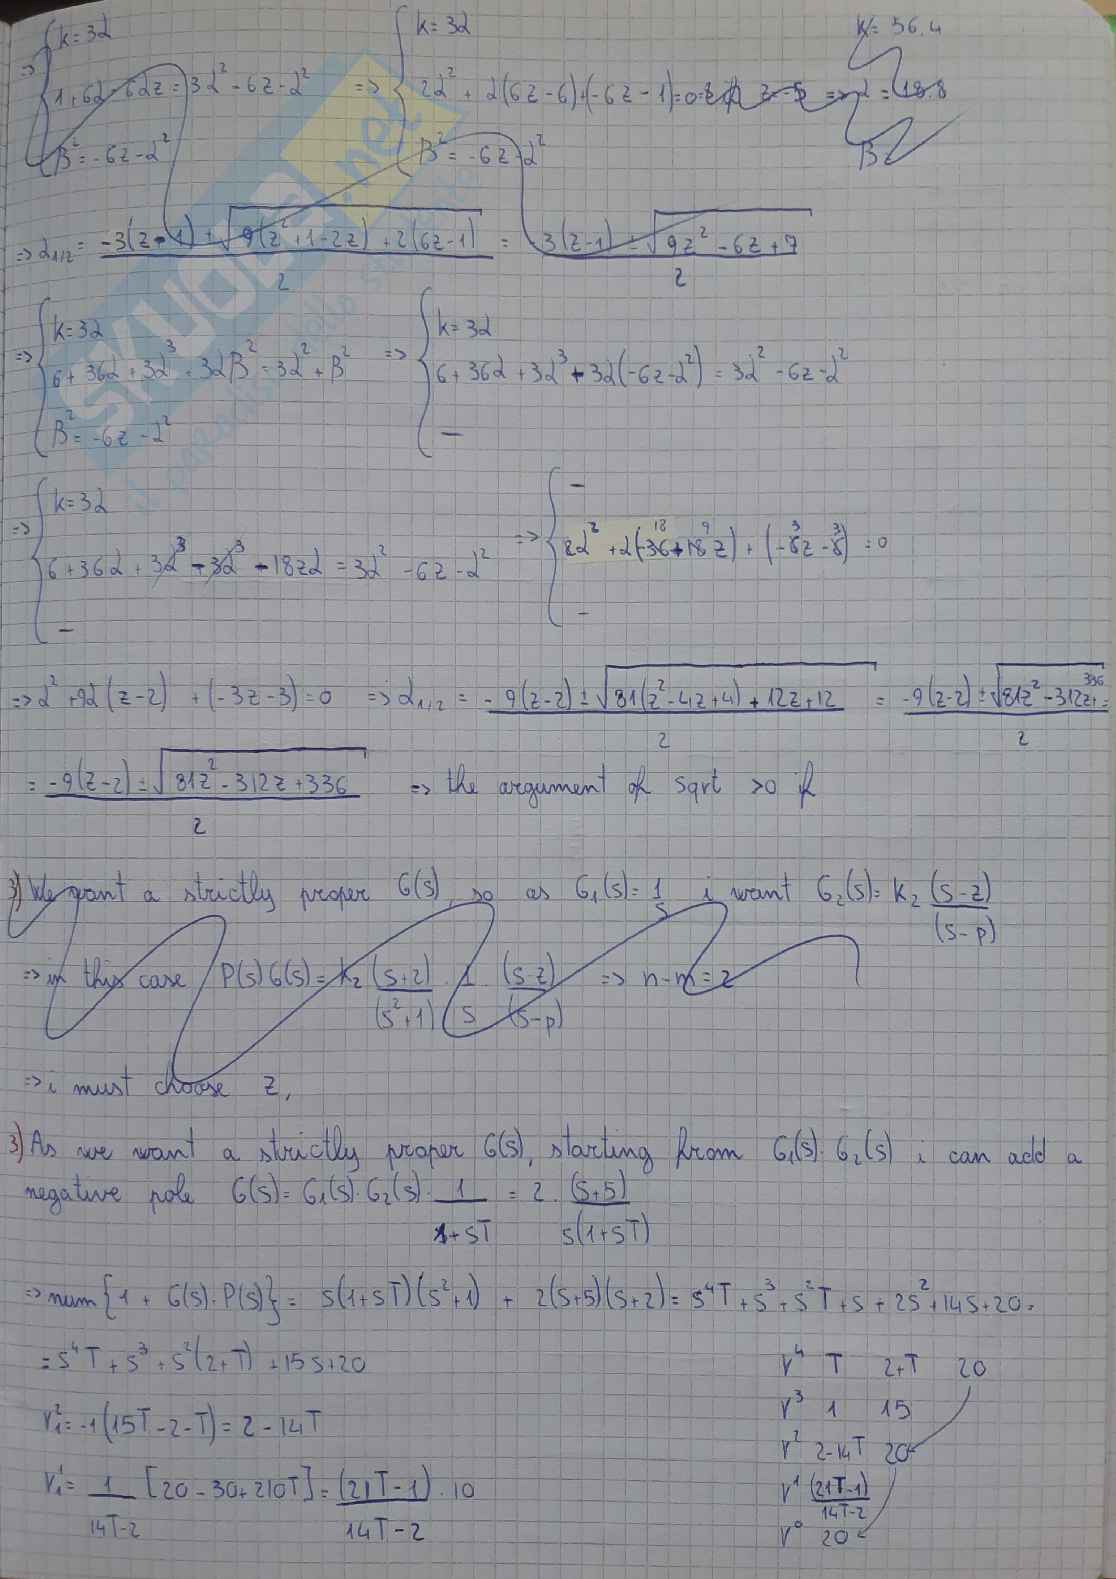 ⇒ { k = 3α
1 + 6α - 6αz = 3α² - 6z - α²
β² = -6z - α²
⇒ { k = 3α
2α² + α(6z-6) + (-6z-1) = 0
β² = -6z - α²
K = 56.4
⇒ α = 18.8
β =
⇒ α₁/₂ = (-3(z-1) ± √(9(z²+1-2z) + 2(6z-1))) / 2 = (3(z-1) ± √(9z² - 6z + 7)) / 2
⇒ { k = 3α
6 + 36α + 3α³ + 3αβ² = 3α² + β²
β² = -6z - α²
⇒ { k = 3α
6 + 36α + 3α³ + 3α(-6z-α²) = 3α² - 6z - α²
—
⇒ { k = 3α
6 + 36α + 3α³ - 3α³ - 18zα = 3α² - 6z - α²
—
⇒ { —
2α² + α(-36+18z) + (-6z-6) = 0
18 9 3 3
—
⇒ α² + 9α(z-2) + (-3z-3) = 0 ⇒ α₁/₂ = (-9(z-2) ± √(81(z²-4z+4) + 12z+12)) / 2 = (-9(z-2) ± √(81z² - 312z + 336)) / 2 =
= (-9(z-2) ± √(81z² - 312z + 336)) / 2 ⇒ the argument of sqrt >0 if
3) We want a strictly proper G(s), so as G₁(s) = 1/s i want G₂(s) = K₂ (s-z)/(s-p)
⇒ in this case P(s)G(s) = K₂ (s+2)/(s²+1) · 1/s · (s-z)/(s-p) ⇒ n-m = 2
⇒ i must choose z,
3) As we want a strictly proper G(s), starting from G₁(s)·G₂(s) i can add a
negative pole G(s) = G₁(s)·G₂(s) · 1/(1+sT) = 2 · (s+5)/(s(1+sT))
⇒ num{1 + G(s)·P(s)} = s(1+sT)(s²+1) + 2(s+5)(s+2) = s⁴T + s³ + s²T + s + 2s² + 14s + 20 =
= s⁴T + s³ + s²(2+T) + 15s + 20
r₁² = -1(15T - 2 - T) = 2 - 14T
r₁¹ = 1/(14T-2) [20 - 30 + 210T] = (21T-1)/(14T-2) · 10
r⁴ T 2+T 20
r³ 1 15
r² 2-14T 20
r¹ (21T-1)/(14T-2)
r⁰ 20